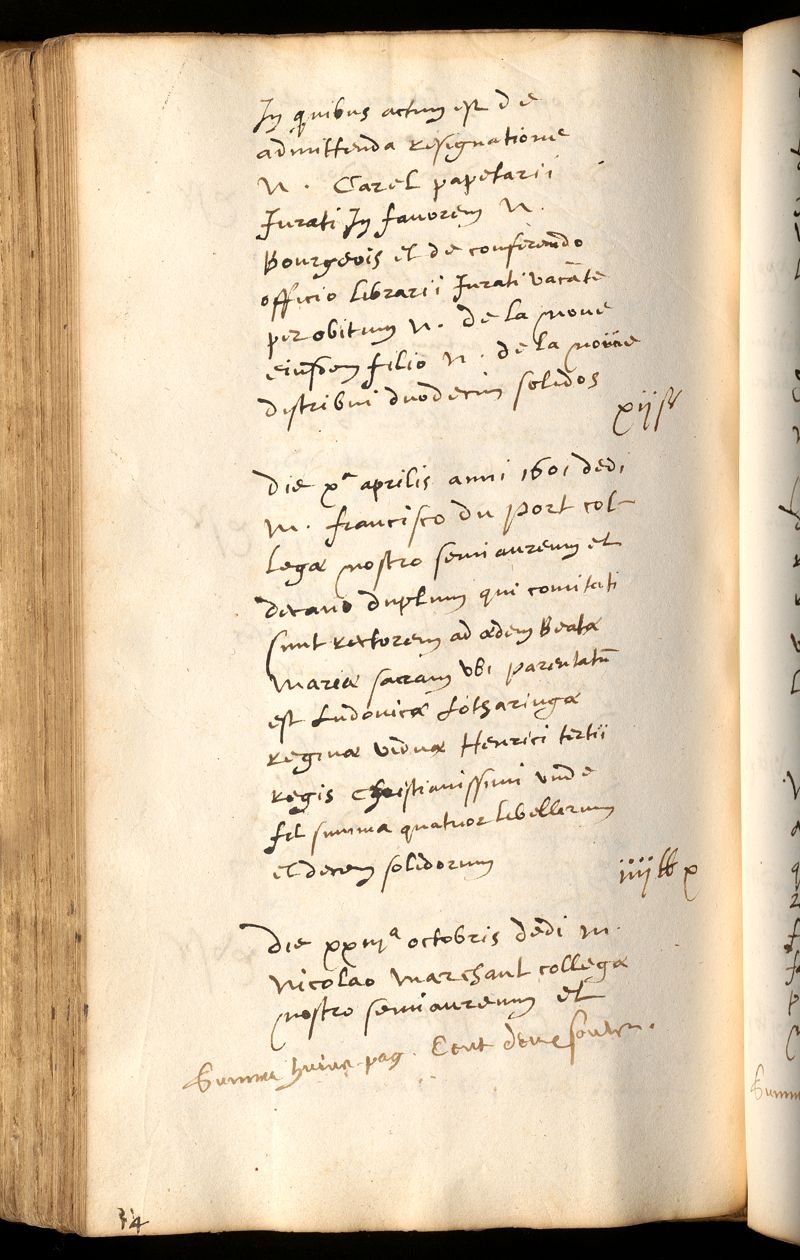 In quibus actum est de
admittenda resignatione
N. Carel papetarii
Jurati In favorem N.
Bourgeois et de conferendo
officio librarii Jurati vacāte
per obitum N. de la Noue
eiusdem filio N. de la Noüe
distribui duodecim solidos
xijs
die xa aprilis anni 1601 dedi
M. francisco du port col-
legæ nostro semiaureum et
decano duplum qui comitati
sunt rectorem ad ædem Beatæ
Mariæ sacram ubi parentatū
est Ludovicæ Lotharingæ
reginæ viduæ Henrici tertii
regis christianissimi unde
fit summa quatuor libellorum
et decem solidorum
iiijtt x
die xxiija octobris dedi M.
Nicolao Marchant collegæ
nostro semiaureum et
Summa huius pag. Cent deux soulz.